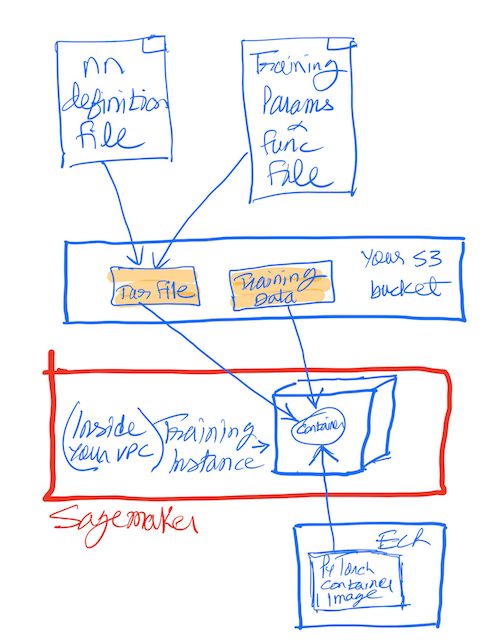 nn
definition
file
Training
Params
&
func
File
Your S3
bucket
Tar File
Training
Data
(Inside
Your VPC)
Training
Instance
Container
Sagemaker
ECR
PyTorch
Container
Image